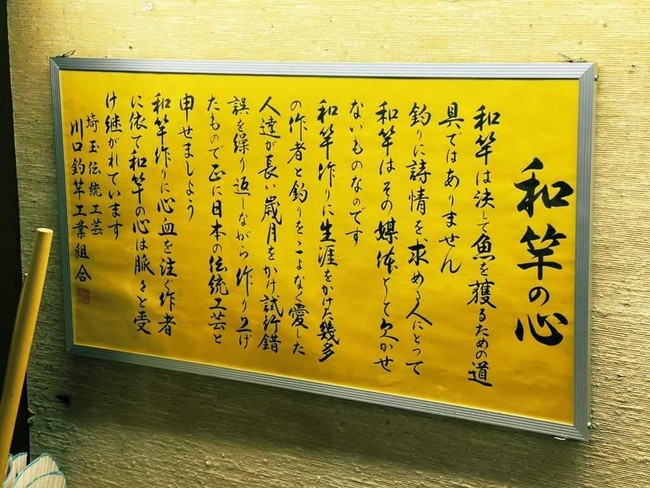 和竿の心
和竿は決して魚を獲るための道
具ではありません
釣りに詩情を求める人にとって
和竿はその媒体として欠かせ
ないものなのです
和竿作りに生涯をかけた幾多
の作者と釣りをこよなく愛した
人達が長い歳月をかけ試行錯
誤を繰り返しながら作り上げ
たもので正に日本の伝統工芸と
申せましよう
和竿作りに心血を注ぐ作者
に依て和竿の心は脈々と受
け継がれています
埼玉伝統工芸
川口釣竿工業組合